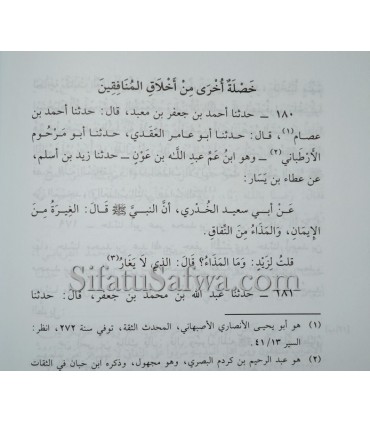 خَصْلَةٌ أُخْرَى مِنْ أَخْلَاقِ المُنَافِقِينَ
١٨٠ ـ حدثنا أحمد بن جعفر بن معبد، قال: حدثنا أحمد بن
عصام(١)، قال: حدثنا أبو عامر العَقَدي، حدثنا أبو مَرْحُوم
الأَرْطَباني(٢) ـ وهو ابنُ عَمِّ عبد اللّٰه بن عَوْنٍ ـ حدثنا زيد بن أسلم،
عن عطاء بن يَسَار:
عَنْ أبي سعيد الخُدْري، أنَّ النبيَّ ﷺ قَالَ: الغِيرَةُ مِنَ
الإِيمَانِ، وَالمَذَاءُ مِنَ النِّفَاقِ.
قلتُ لِزَيْدٍ: وَمَا المَذَاءُ؟ قَالَ: الَّذِي لَا يَغَارُ(٣)
١٨١ ـ حدثنا عبد اللّٰه بن محمد بن جعفر، قال: حدثنا
(١) هو أبو يحيى الأنصاري الأصبهاني، المحدث الثقة، توفي سنة ٢٧٢، انظر:
السير ٤١/١٣.
(٢) هو عبد الرحيم بن كردم البصري، وهو مجهول، وذكره ابن حبان في الثقات
SifatuSafwa.com